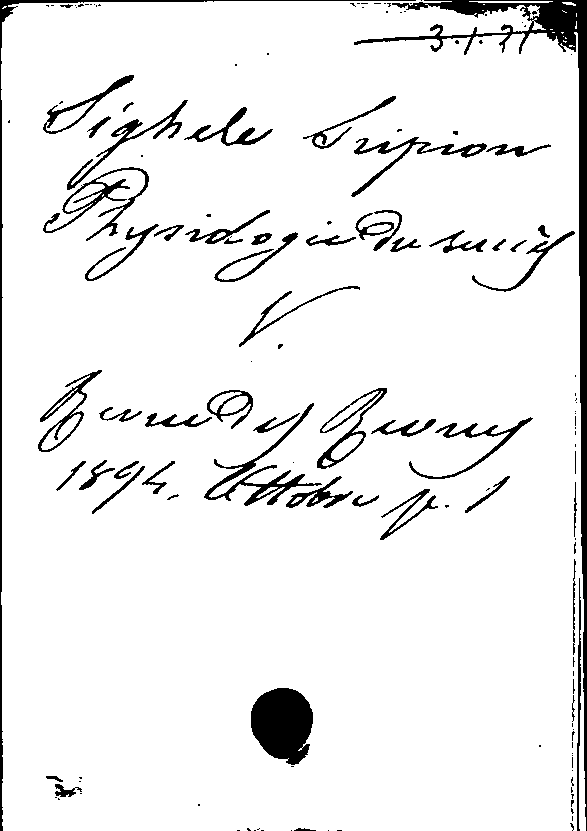 3.1.21
Sighele Scipion
Physiologie du succès
V.
Revue des Revues
1894. Ottobre p. 1